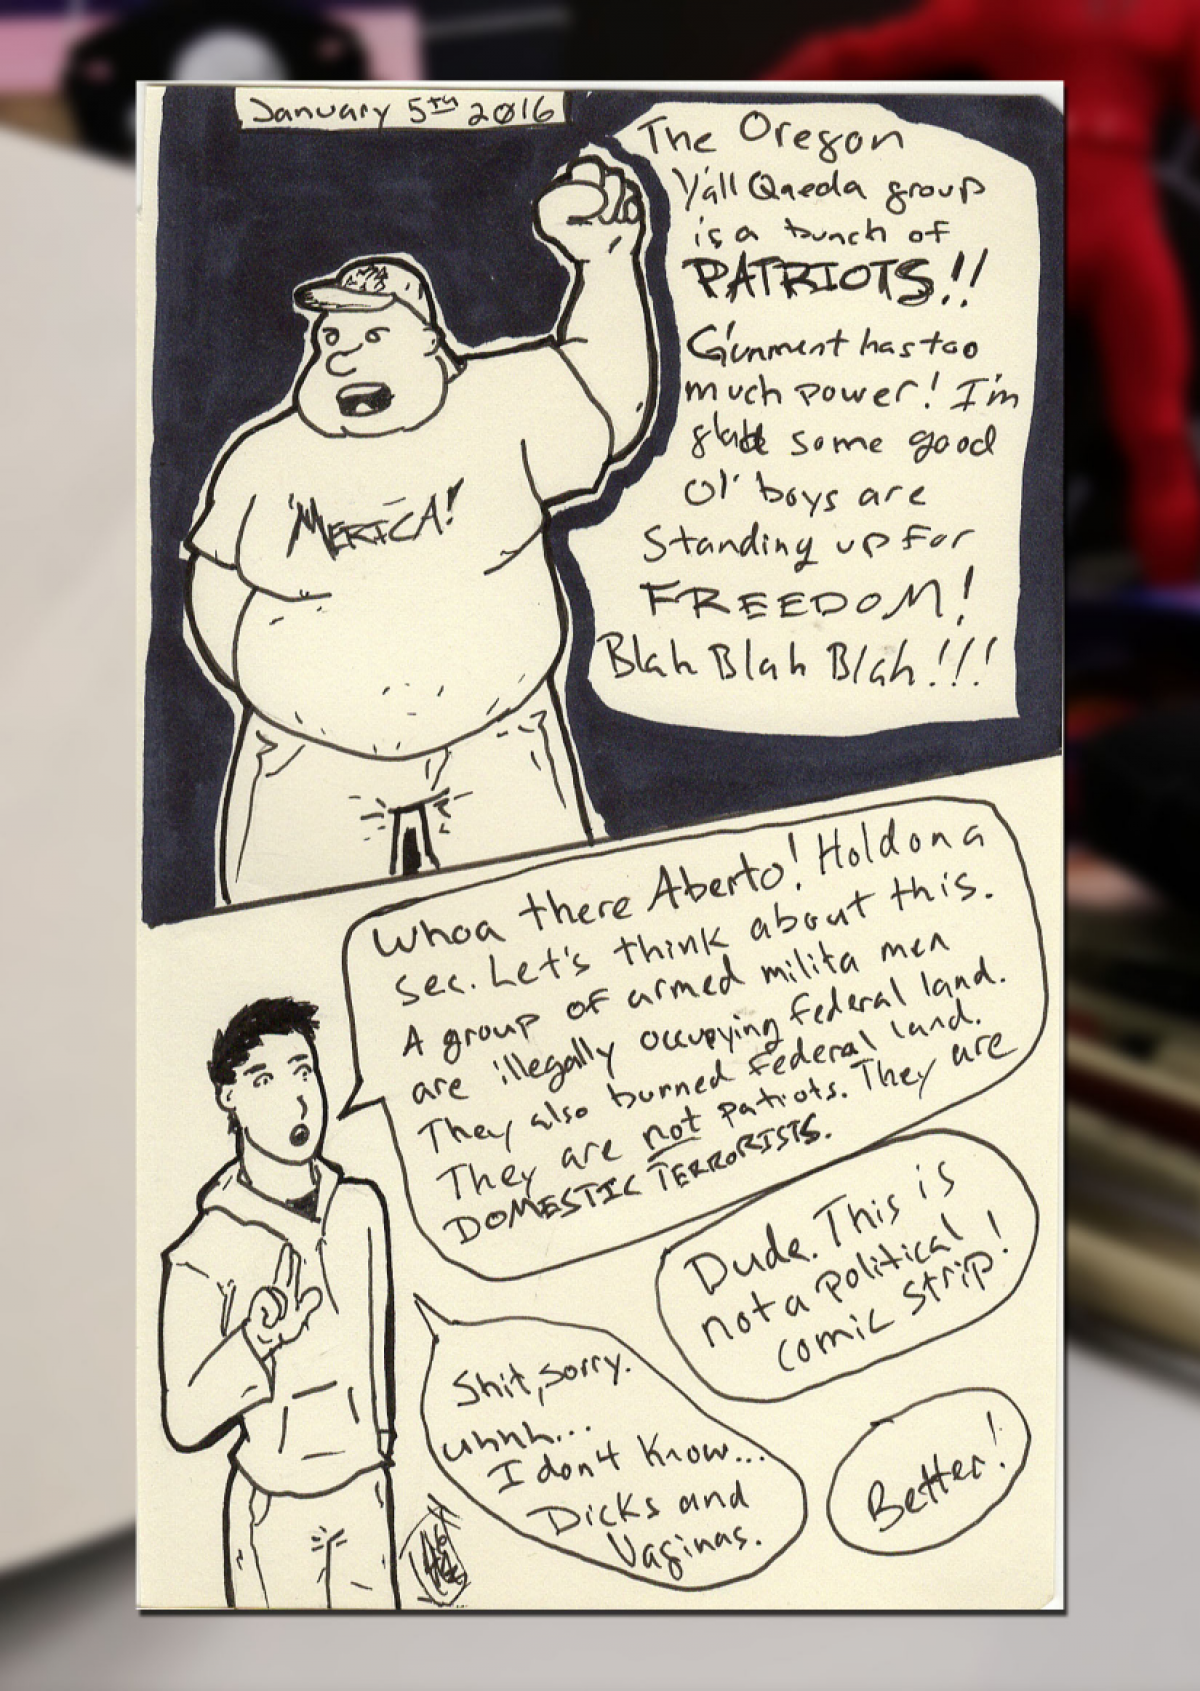 January 5th 2016
The Oregon
Y'all Qaeda group
is a bunch of
PATRIOTS!!
G'unment has too
much power! I'm
glad some good
Ol' boys are
Standing up For
FREEDOM!
Blah Blah Blah!!!
'MERICA!
Whoa there Aberto! Hold on a
sec. Let's think about this.
A group of armed milita men
are illegally occupying federal land.
They also burned federal land.
They are not patriots. They are
DOMESTIC TERRORISTS.
Dude. This is
not a political
comic strip!
Shit, sorry.
uhhh...
I don't know...
Dicks and
Vaginas.
Better!